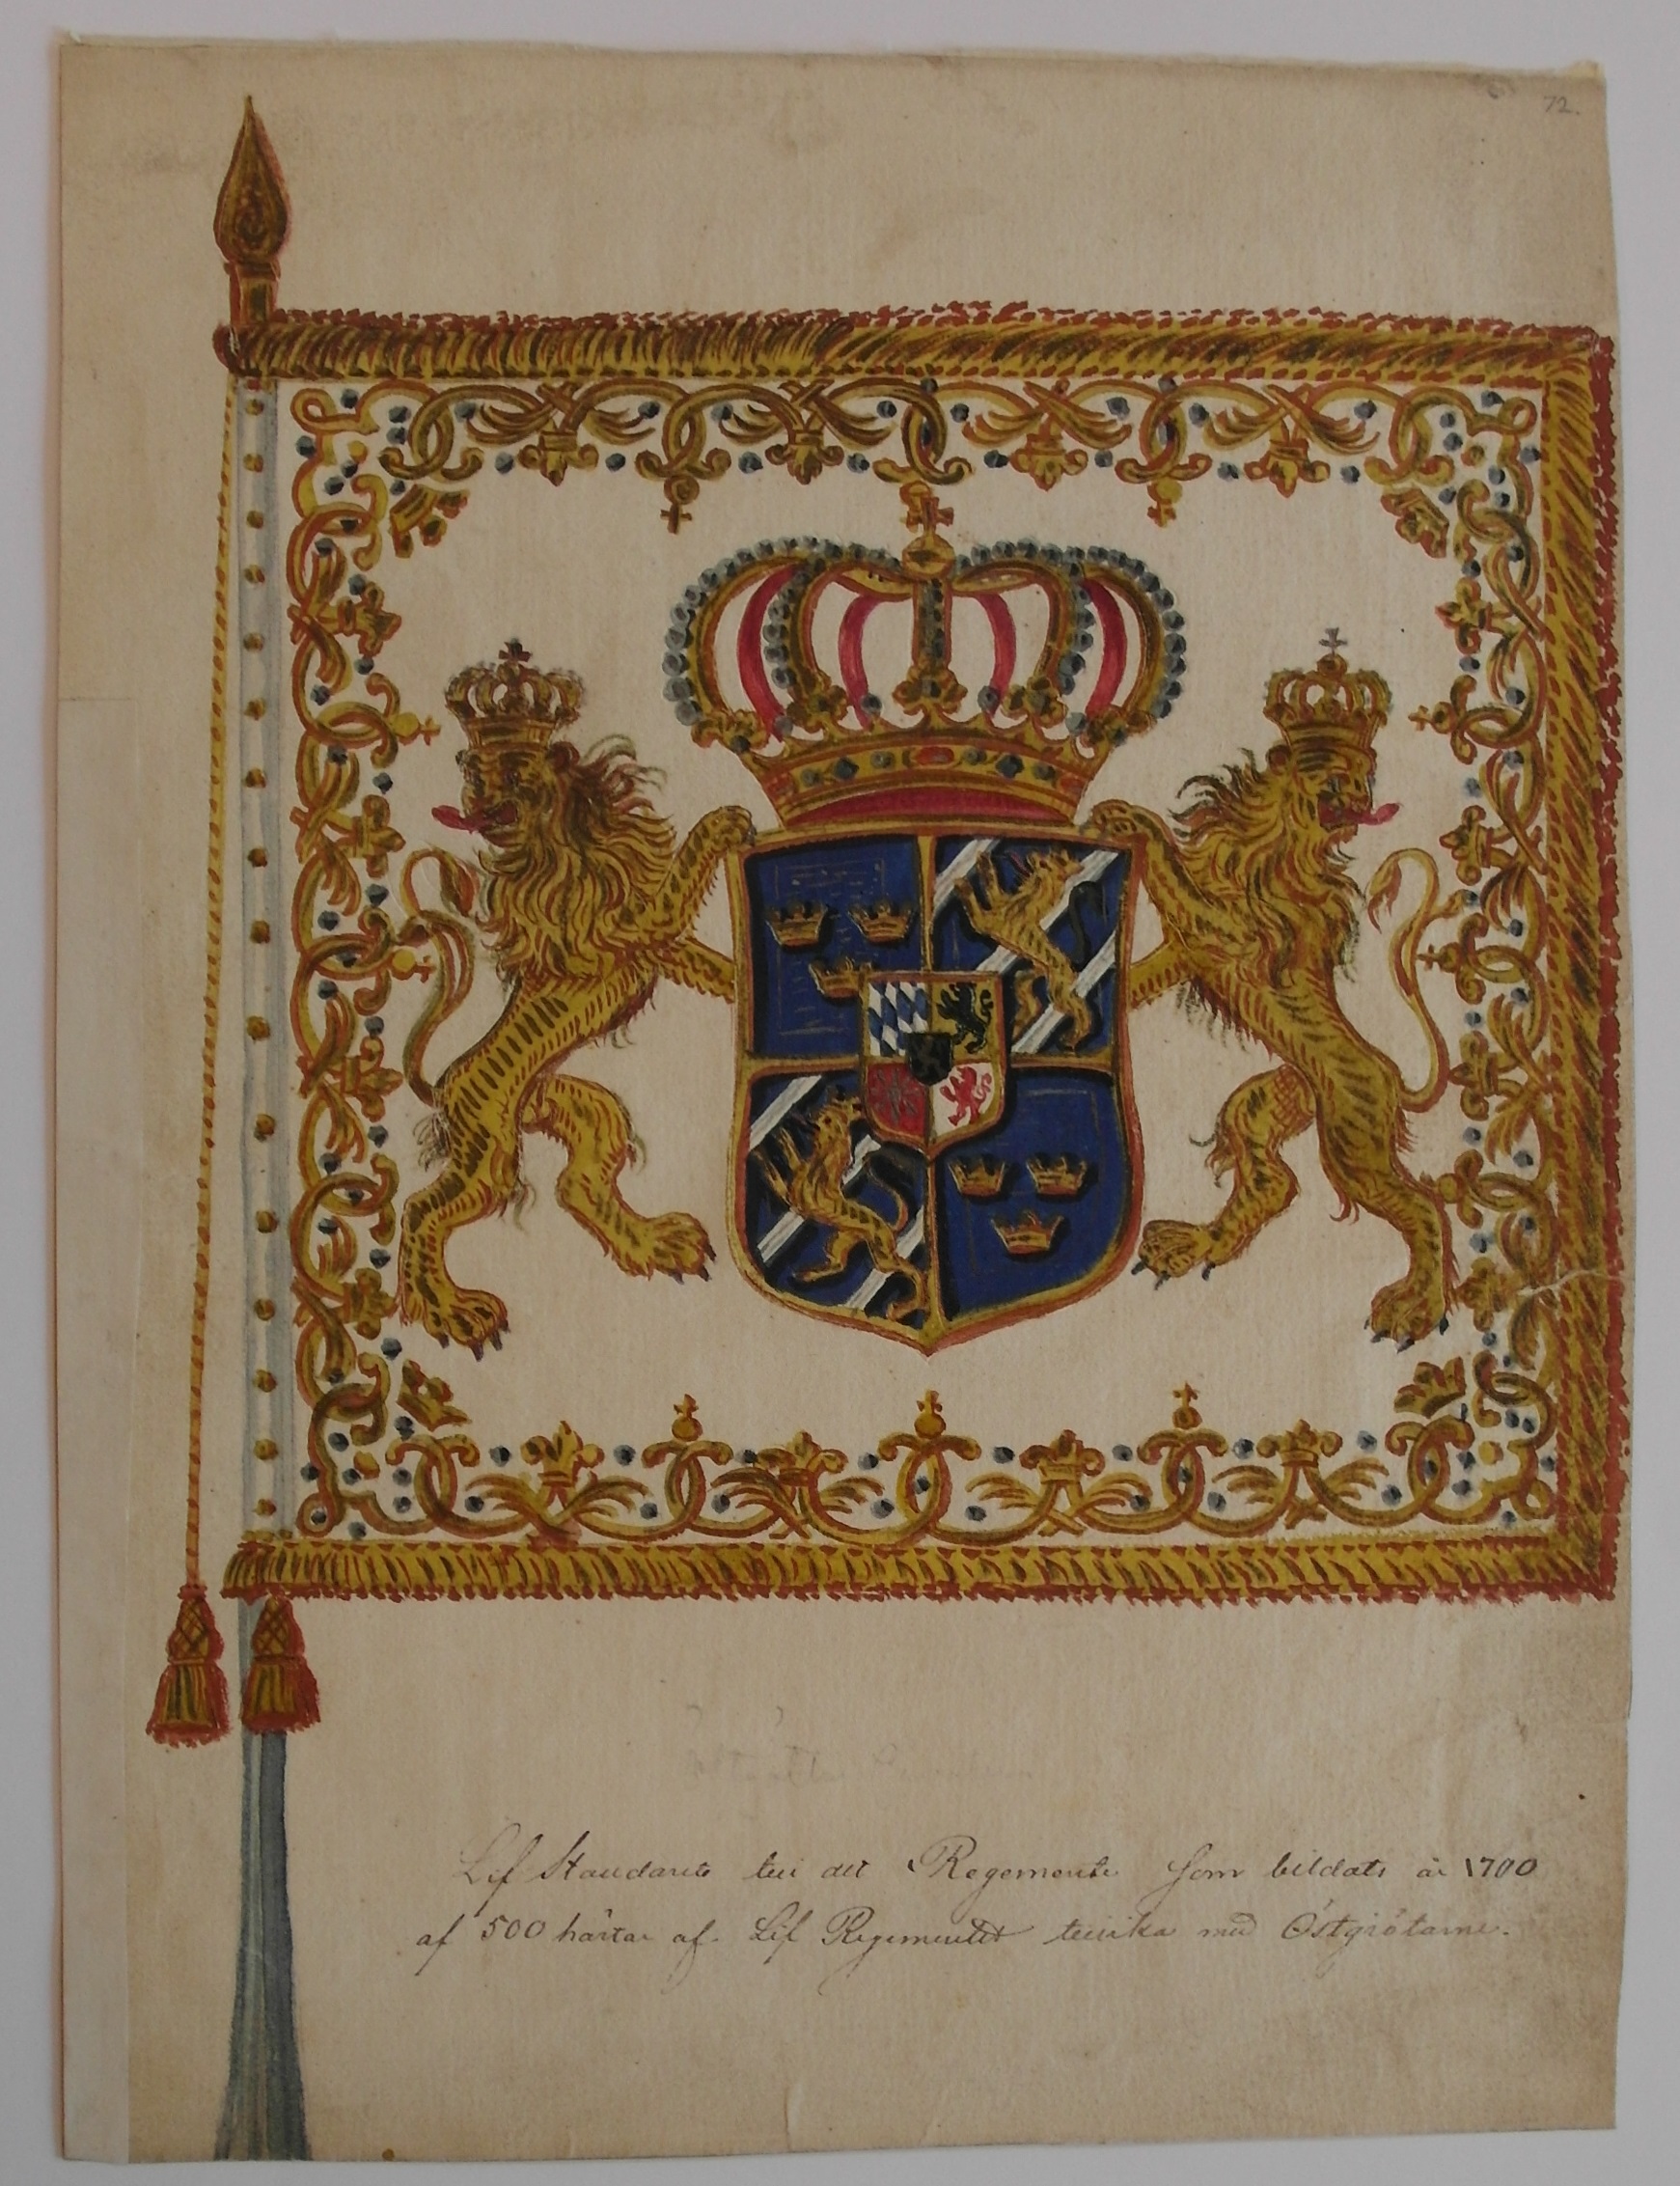 72.
Lif Standaret till det Regemente som bildats år 1700
af 500 hästar af Lif Regementet tillika med Östgiötarne.